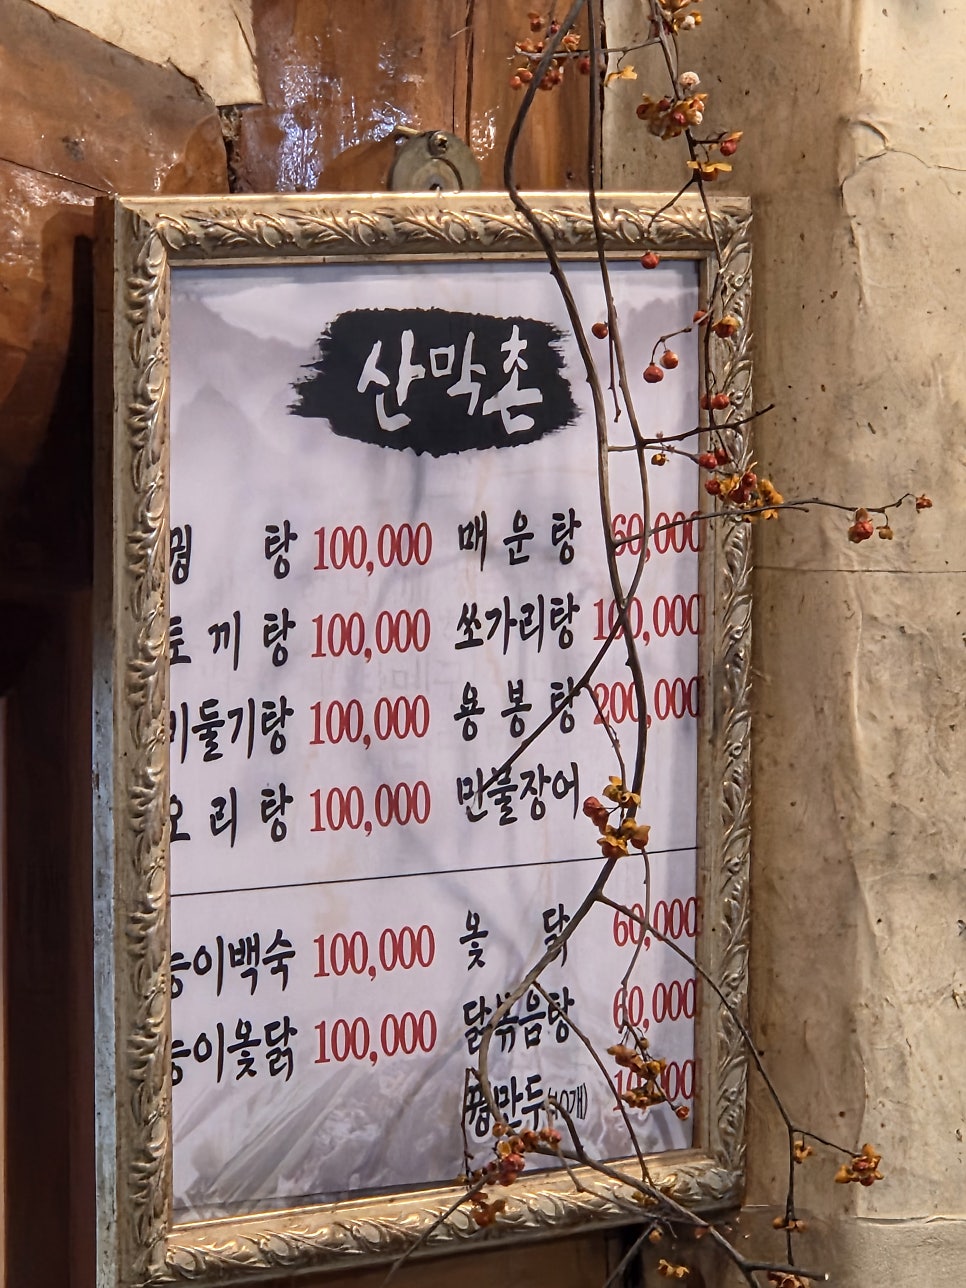 산막촌
꿩 탕 100,000 매 운 탕 60,000
토 끼 탕 100,000 쏘가리탕 100,000
비둘기탕 100,000 용 봉 탕 200,000
오 리 탕 100,000 민물장어
능이백숙 100,000 옻 닭 60,000
능이옻닭 100,000 닭볶음탕 60,000
꿩만두(10개) 10,000